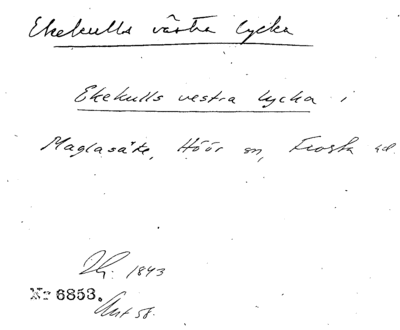 Ekekulls västra lycka
Ekekulls vestra lycka i
Maglasäte, Höör sn, Frosta hd.
1843
Nr 6853.
Ant 58.